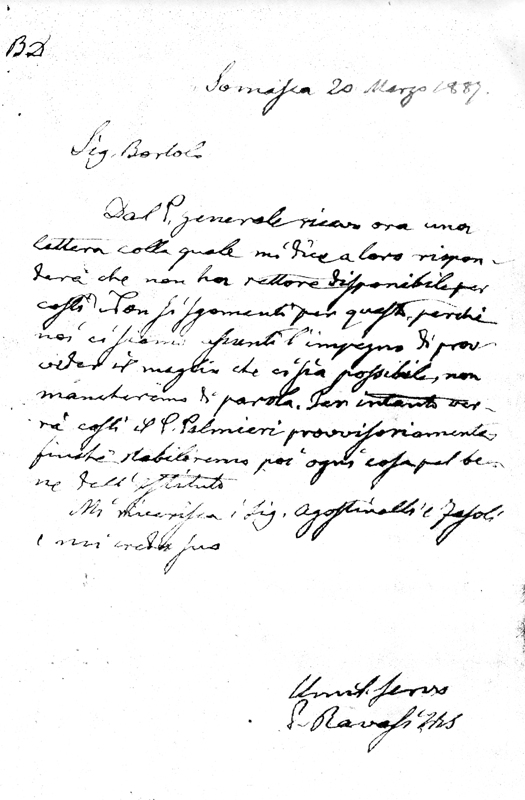 BD
Somasca 20 Marzo 1887.
Sig. Bortolo
Dal P. generale ricevo ora una
lettera colla quale mi dice a loro rispon-
derà che non ha rettore disponibile per
costì. Non si sgomenti per questo, perchè
noi ci siamo assunti l'impegno di prov-
veder il meglio che ci sia possibile, non
mancheremo di parola. Per intanto ver-
rà costì il P. Palmieri provvisoriamente
finchè stabiliremo poi ogni cosa pel be-
ne dell'istituto
Mi riverisca i Sig. Agostinelli e
e mi creda suo
Umil. servo
P. Ravasi